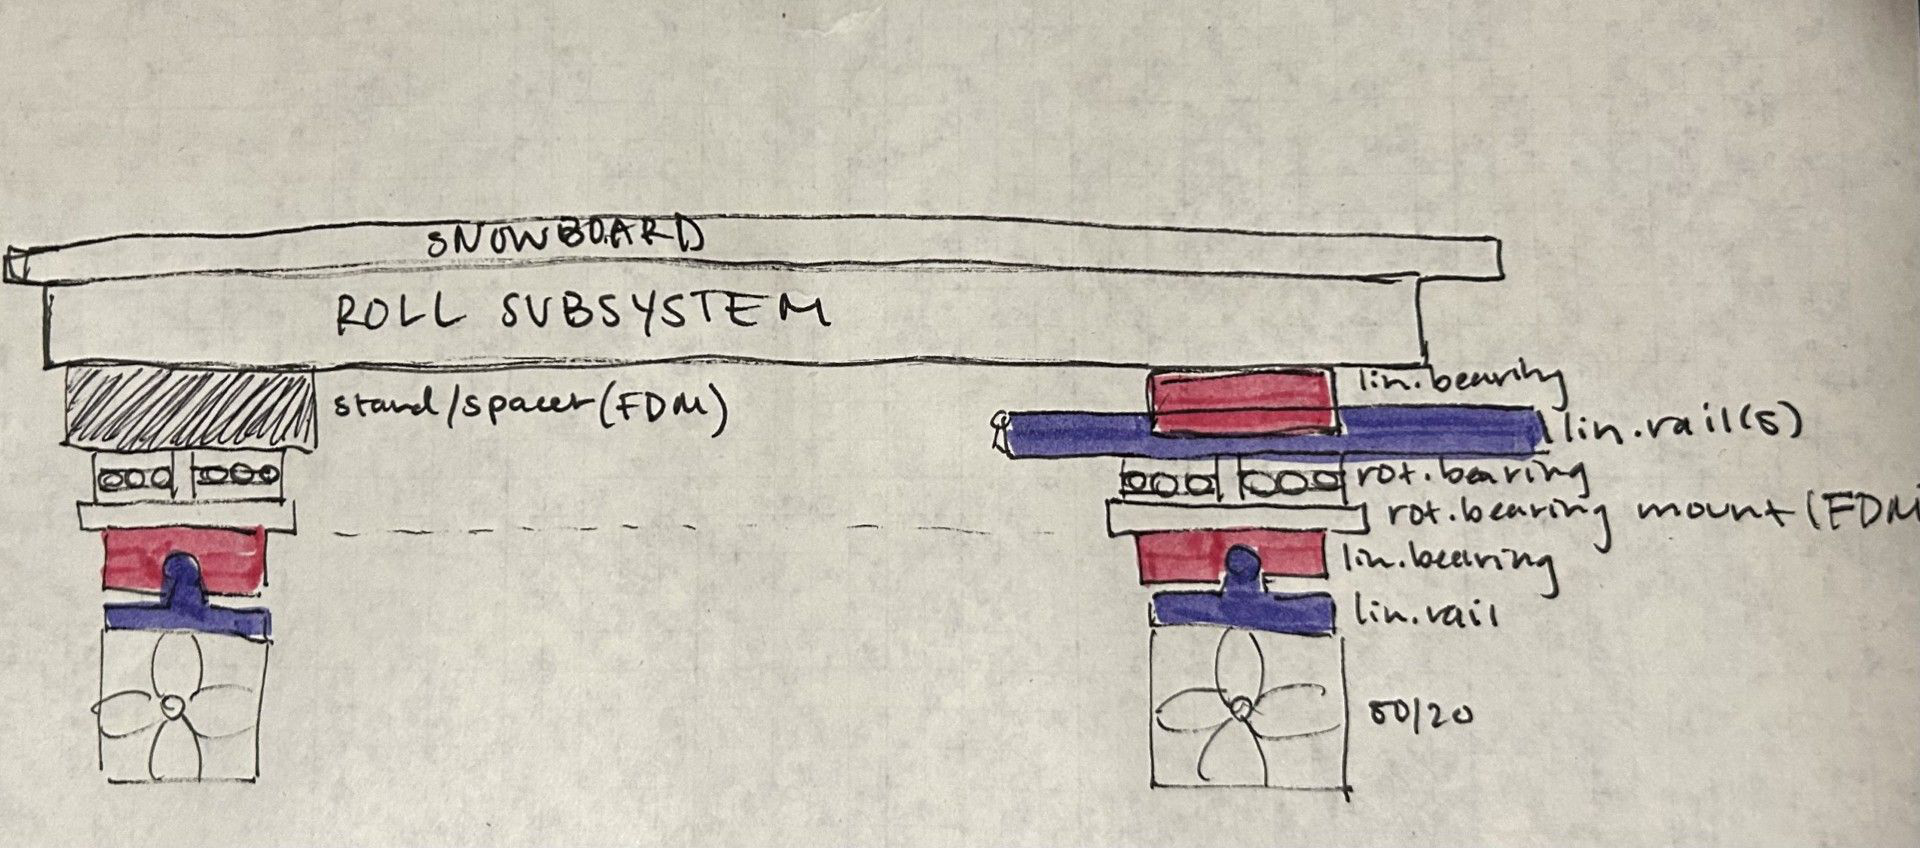 SNOWBOARD
ROLL SUBSYSTEM
lin.bearing
stand/spacer (FDM)
lin.rail(s)
rot.bearing
rot.bearing mount (FDM
lin.bearing
lin.rail
80/20